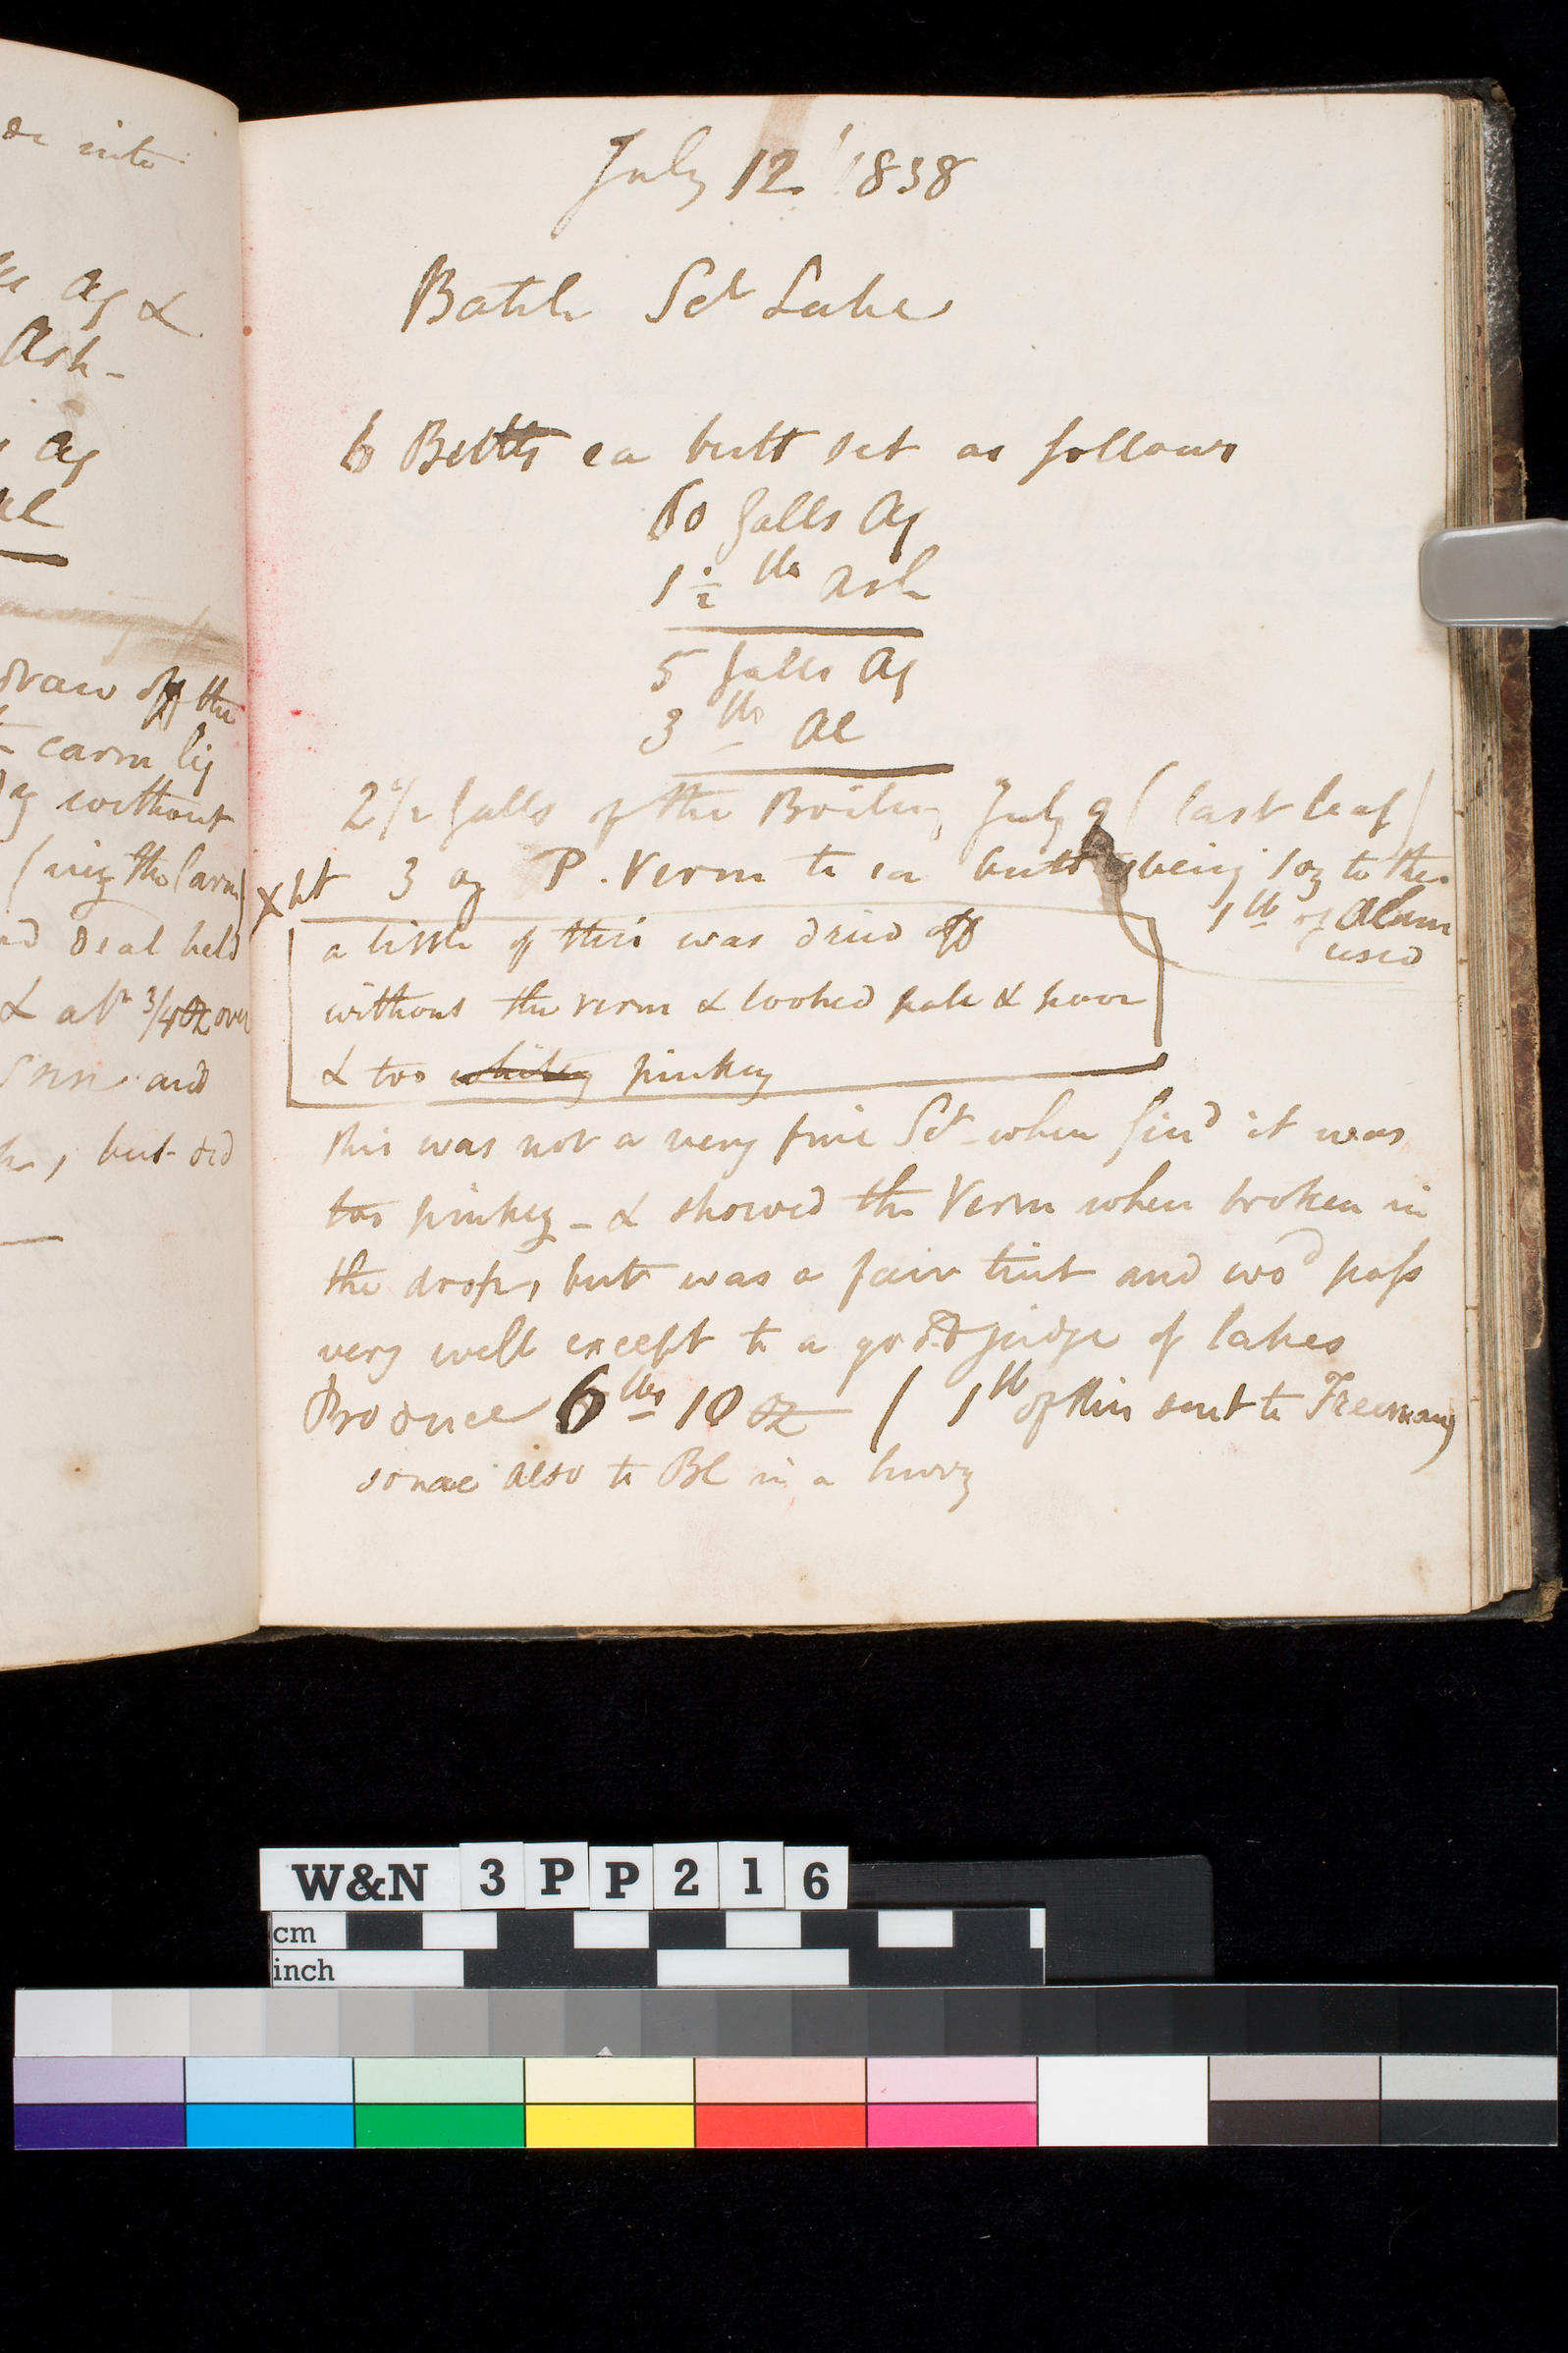 de into
Aq &
Ash -
Aq
Al
draw off the
carm liq
without
(viz the Carm)
Deal held
& abt 3/4 oz over
and
but did
July 12 1838
Batch Sct Lake
6 Butts ea butt set as follows
60 galls Aq
1 1/2 lbs Ash
5 galls Aq
3 lbs Al
2 1/2 galls of the Boiling July 9 (last leaf)
xht 3 oz P. Verm to ea butt being 1 oz to the
1 lb of Alum
used
a little of this was dried off
without the verm & looked pale & poor
& too whitey pinkey
this was not a very fine Sct - when find it was
too pinkey - & showed the Verm when broken in
the drop, but was a fair tint and wod pass
very well except to a good judge of lakes
Produce 6 lbs 10 oz ( 1 lb of this sent to Freeman)
some also to Bl in a hurry
W&N 3PP216
cm
inch